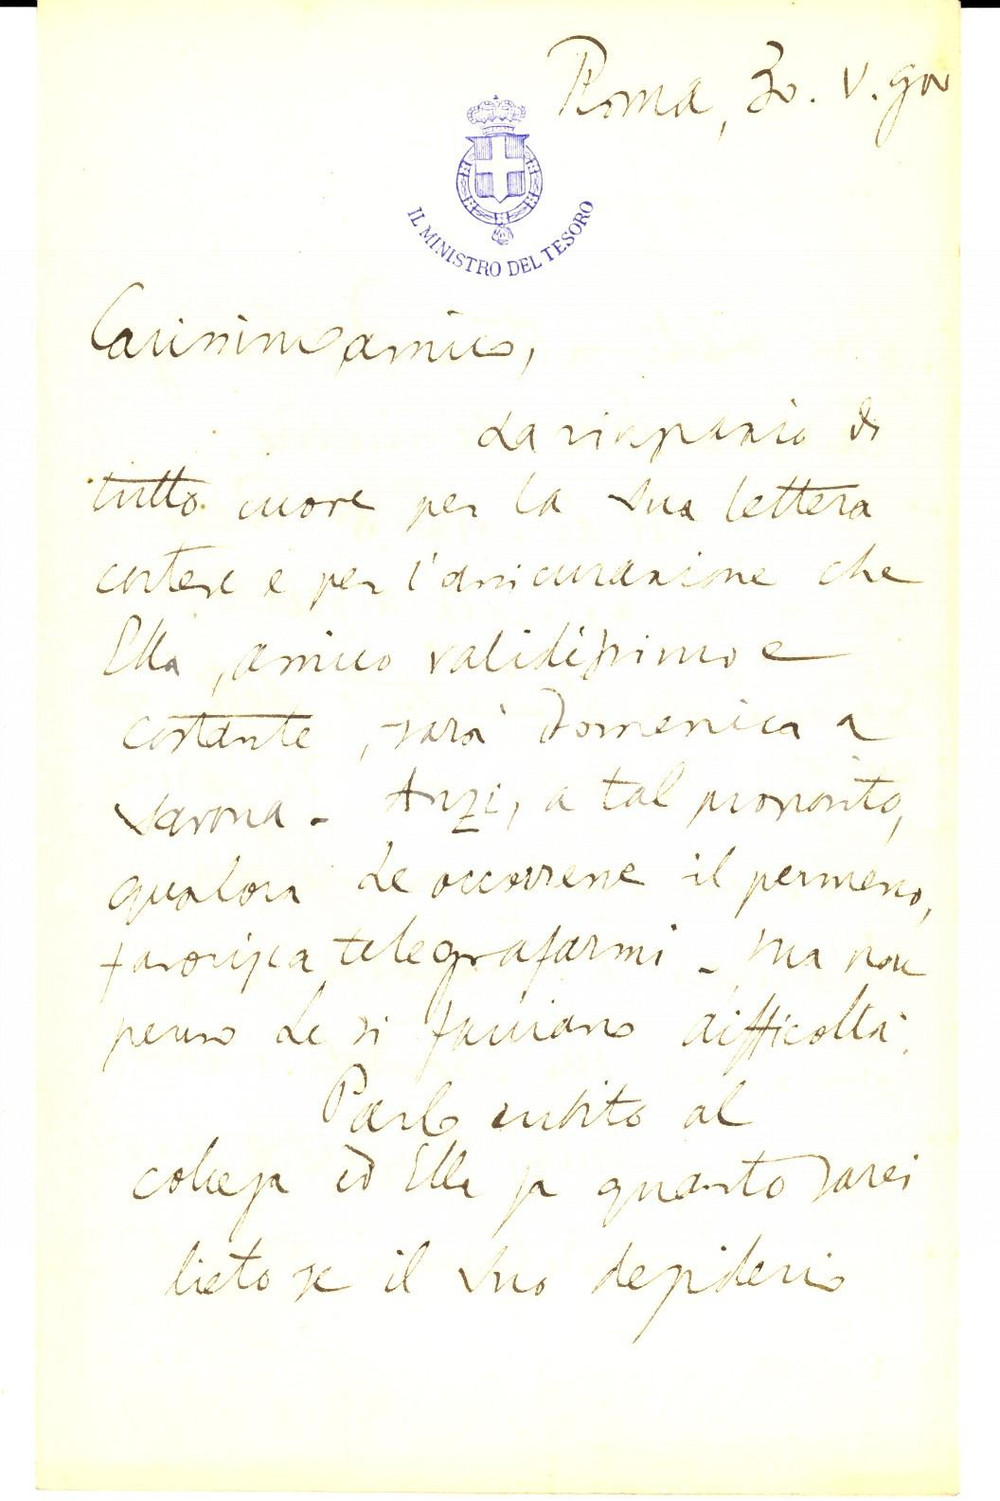 Roma, 30. V. 900
IL MINISTRO DEL TESORO
Carissimo amico,
La ringrazio di
tutto cuore per la Sua lettera
cortese e per l'assicurazione che
Ella, amico validissimo e
costante, sarà Domenica a
Savona - Anzi, a tal proposito,
qualora Le occorresse il permesso,
favorisca telegrafarmi - Ma non
penso Le si facciano difficoltà.
Parlo subito al
collega ed Ella sa quanto sarei
lieto se il Suo desiderio